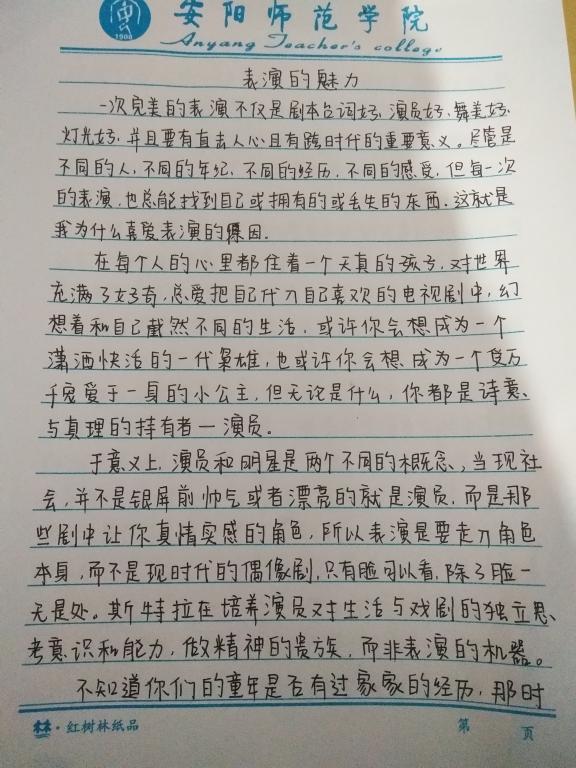 1908
安阳师范学院
Anyang Teacher's college
表演的魅力
一次完美的表演不仅是剧本台词好、演员好、舞美好、
灯光好、并且要有直击人心且有跨时代的重要意义。尽管是
不同的人、不同的年纪、不同的经历、不同的感受、但每一次
的表演,也总能找到自己或拥有的或丢失的东西。这就是
我为什么喜爱表演的原因.
在每个人的心里都住着一个天真的孩子,对世界
充满了好奇,总爱把自己代入自己喜欢的电视剧中,幻
想着和自己截然不同的生活,或许你会想成为一个
潇洒快活的一代枭雄,也或许你会想成为一个受万
千宠爱于一身的小公主,但无论是什么,你都是诗意、
与真理的持有者一演员。
于意义上,演员和明星是两个不同的概念、当现社
会,并不是银屏前帅气或者漂亮的就是演员,而是那
些剧中让你真情实感的角色,所以表演是要走入角色
本身,而不是现时代的偶像剧,只有脸可以看,除了脸一
无是处。斯特拉在培养演员对生活与戏剧的独立思、
考意识和能力,做精神的贵族,而非表演的机器。
不知道你们的童年是否有过家家的经历,那时
红树林纸品
第 页